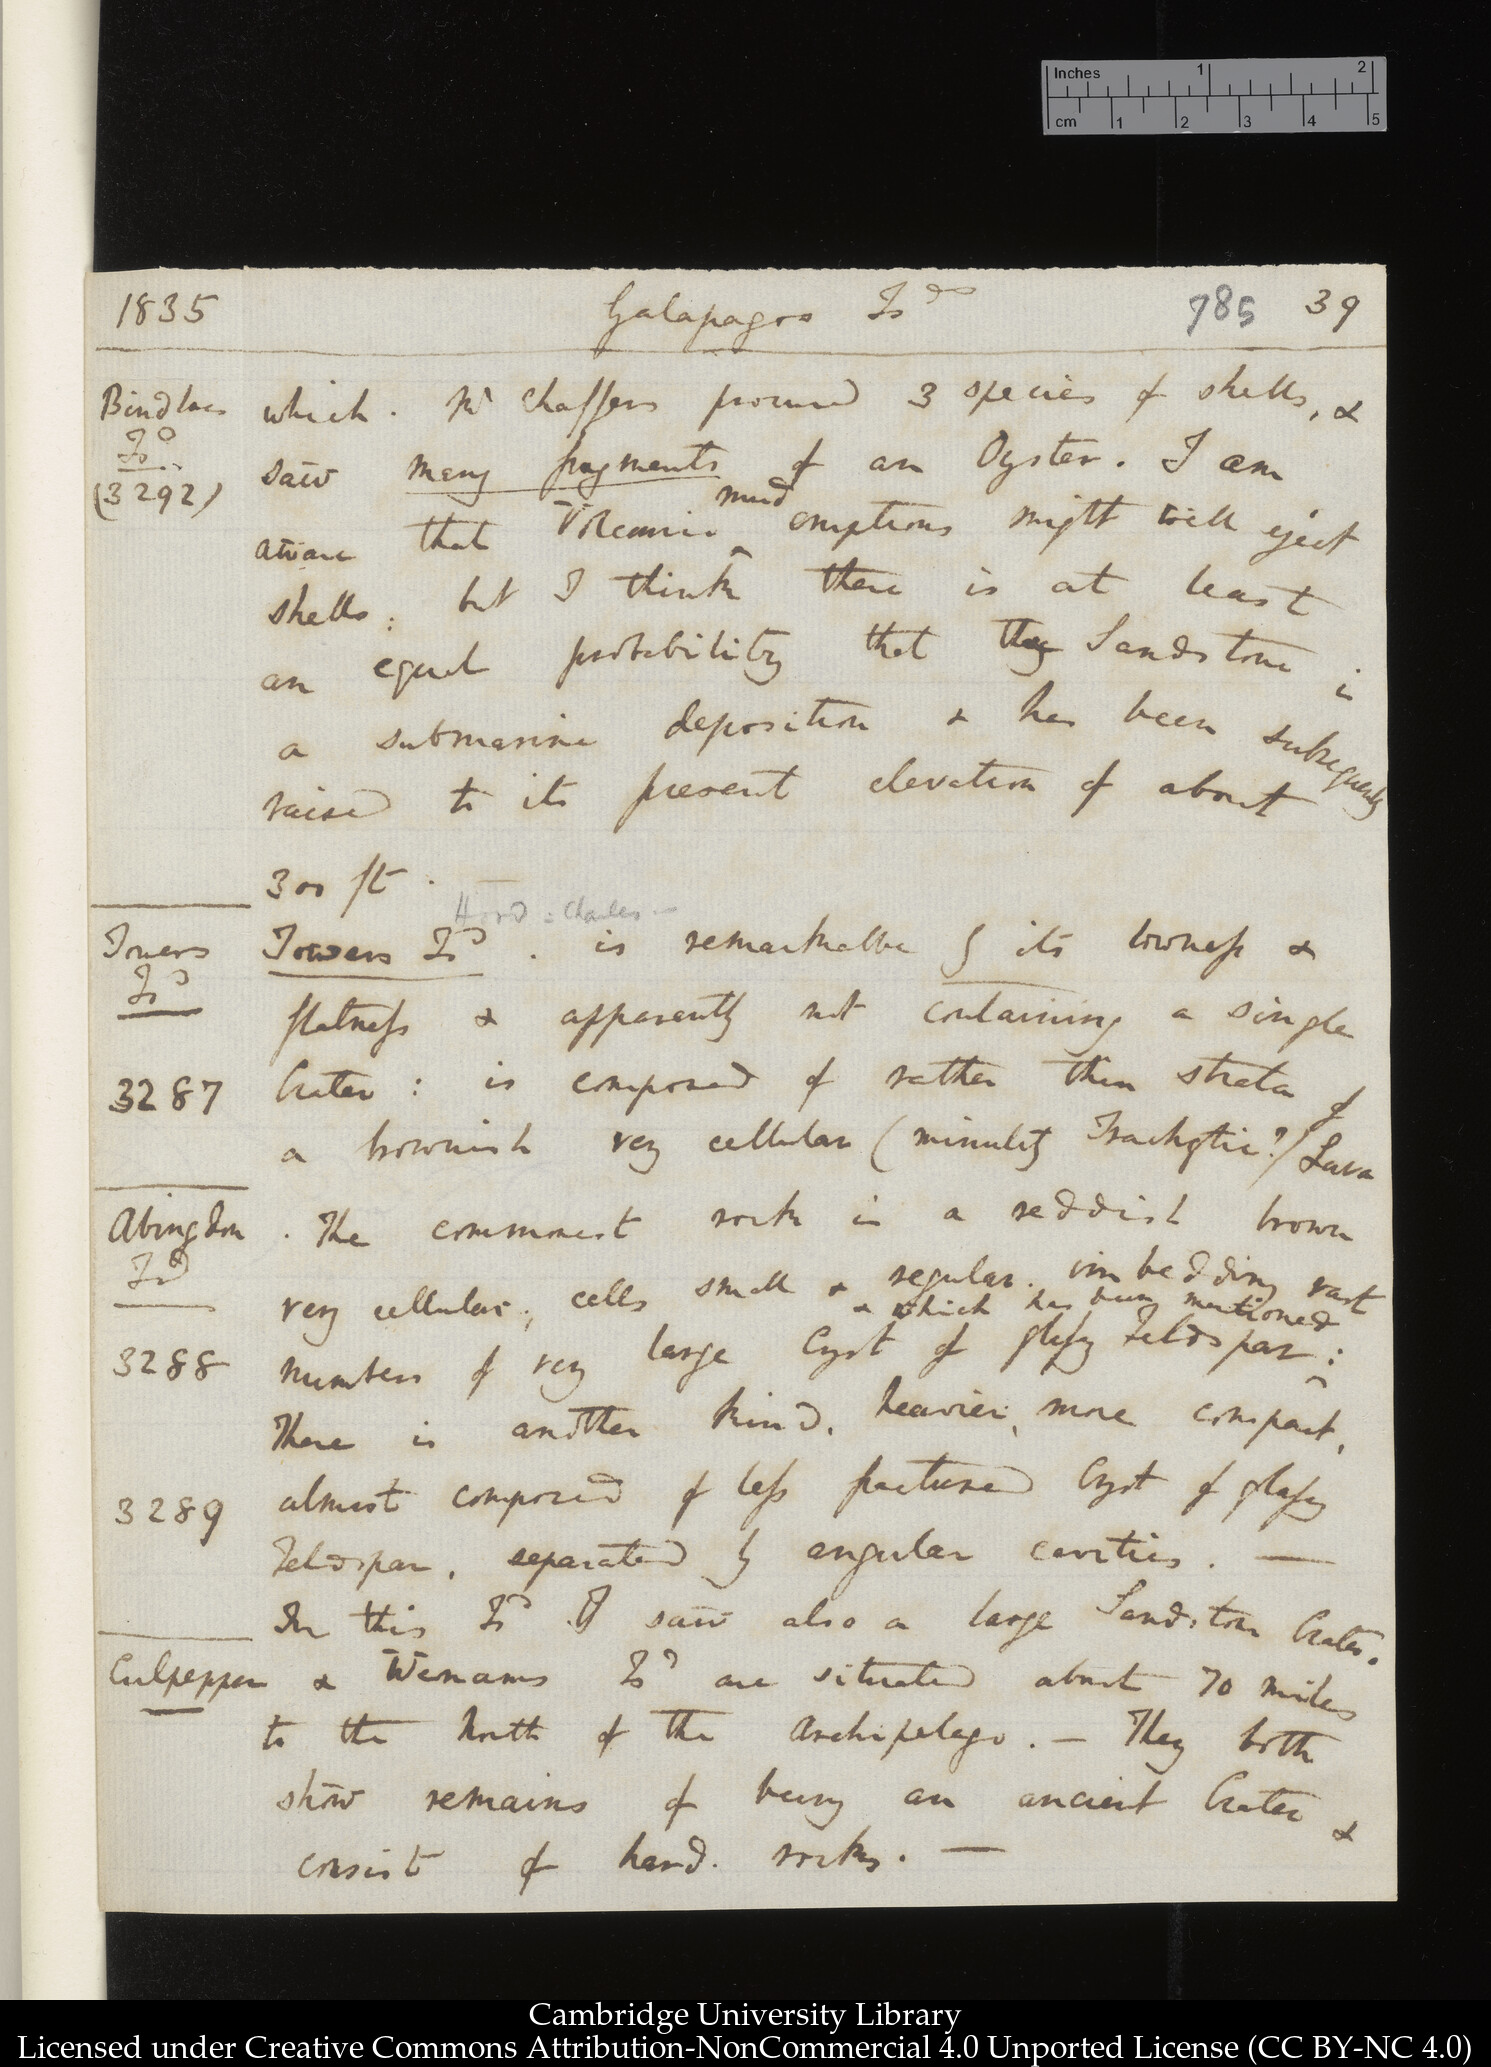 Inches 1 2
cm 1 2 3 4 5
1835 Galapagos Isd 785 39
Bindloes which. Mr Chaffers procured 3 species of shells, &
Isd saw many fragments of an Oyster. I am
(3292) mud
aware that Volcanic ^ eruptions might well eject
shells; but I think there is at least
an equal probability that the Sandstone is
a submarine deposition & has been subsequently
raised to its present elevation of about
300 ft. —
Hood = Charles —
Towers Towers Isd. is remarkable by its lowness &
Isd flatness & apparently not containing a single
3287 Crater: is composed of rather thin strata of
a brownish very cellular (minutely Trachytic?) Lava
Abingdon . The commonest rock is a reddish brown
Isd very cellular; cells small & regular. imbedding vast
& which has been mentioned
3288 numbers of very large Cryst of glassy Feldspar ^:
There is another kind, heavier, more compact,
3289 almost composed of less fractured Cryst of glassy
Feldspar, separated by angular cavities. —
In this Isd I saw also a large Sandstone Crater.
Culpepper & Wenams Isd are situated about 70 miles
to the North of the Archipelago. — They both
show remains of being an ancient Crater &
consist of hard rocks. —
Cambridge University Library
Licensed under Creative Commons Attribution-NonCommercial 4.0 Unported License (CC BY-NC 4.0)